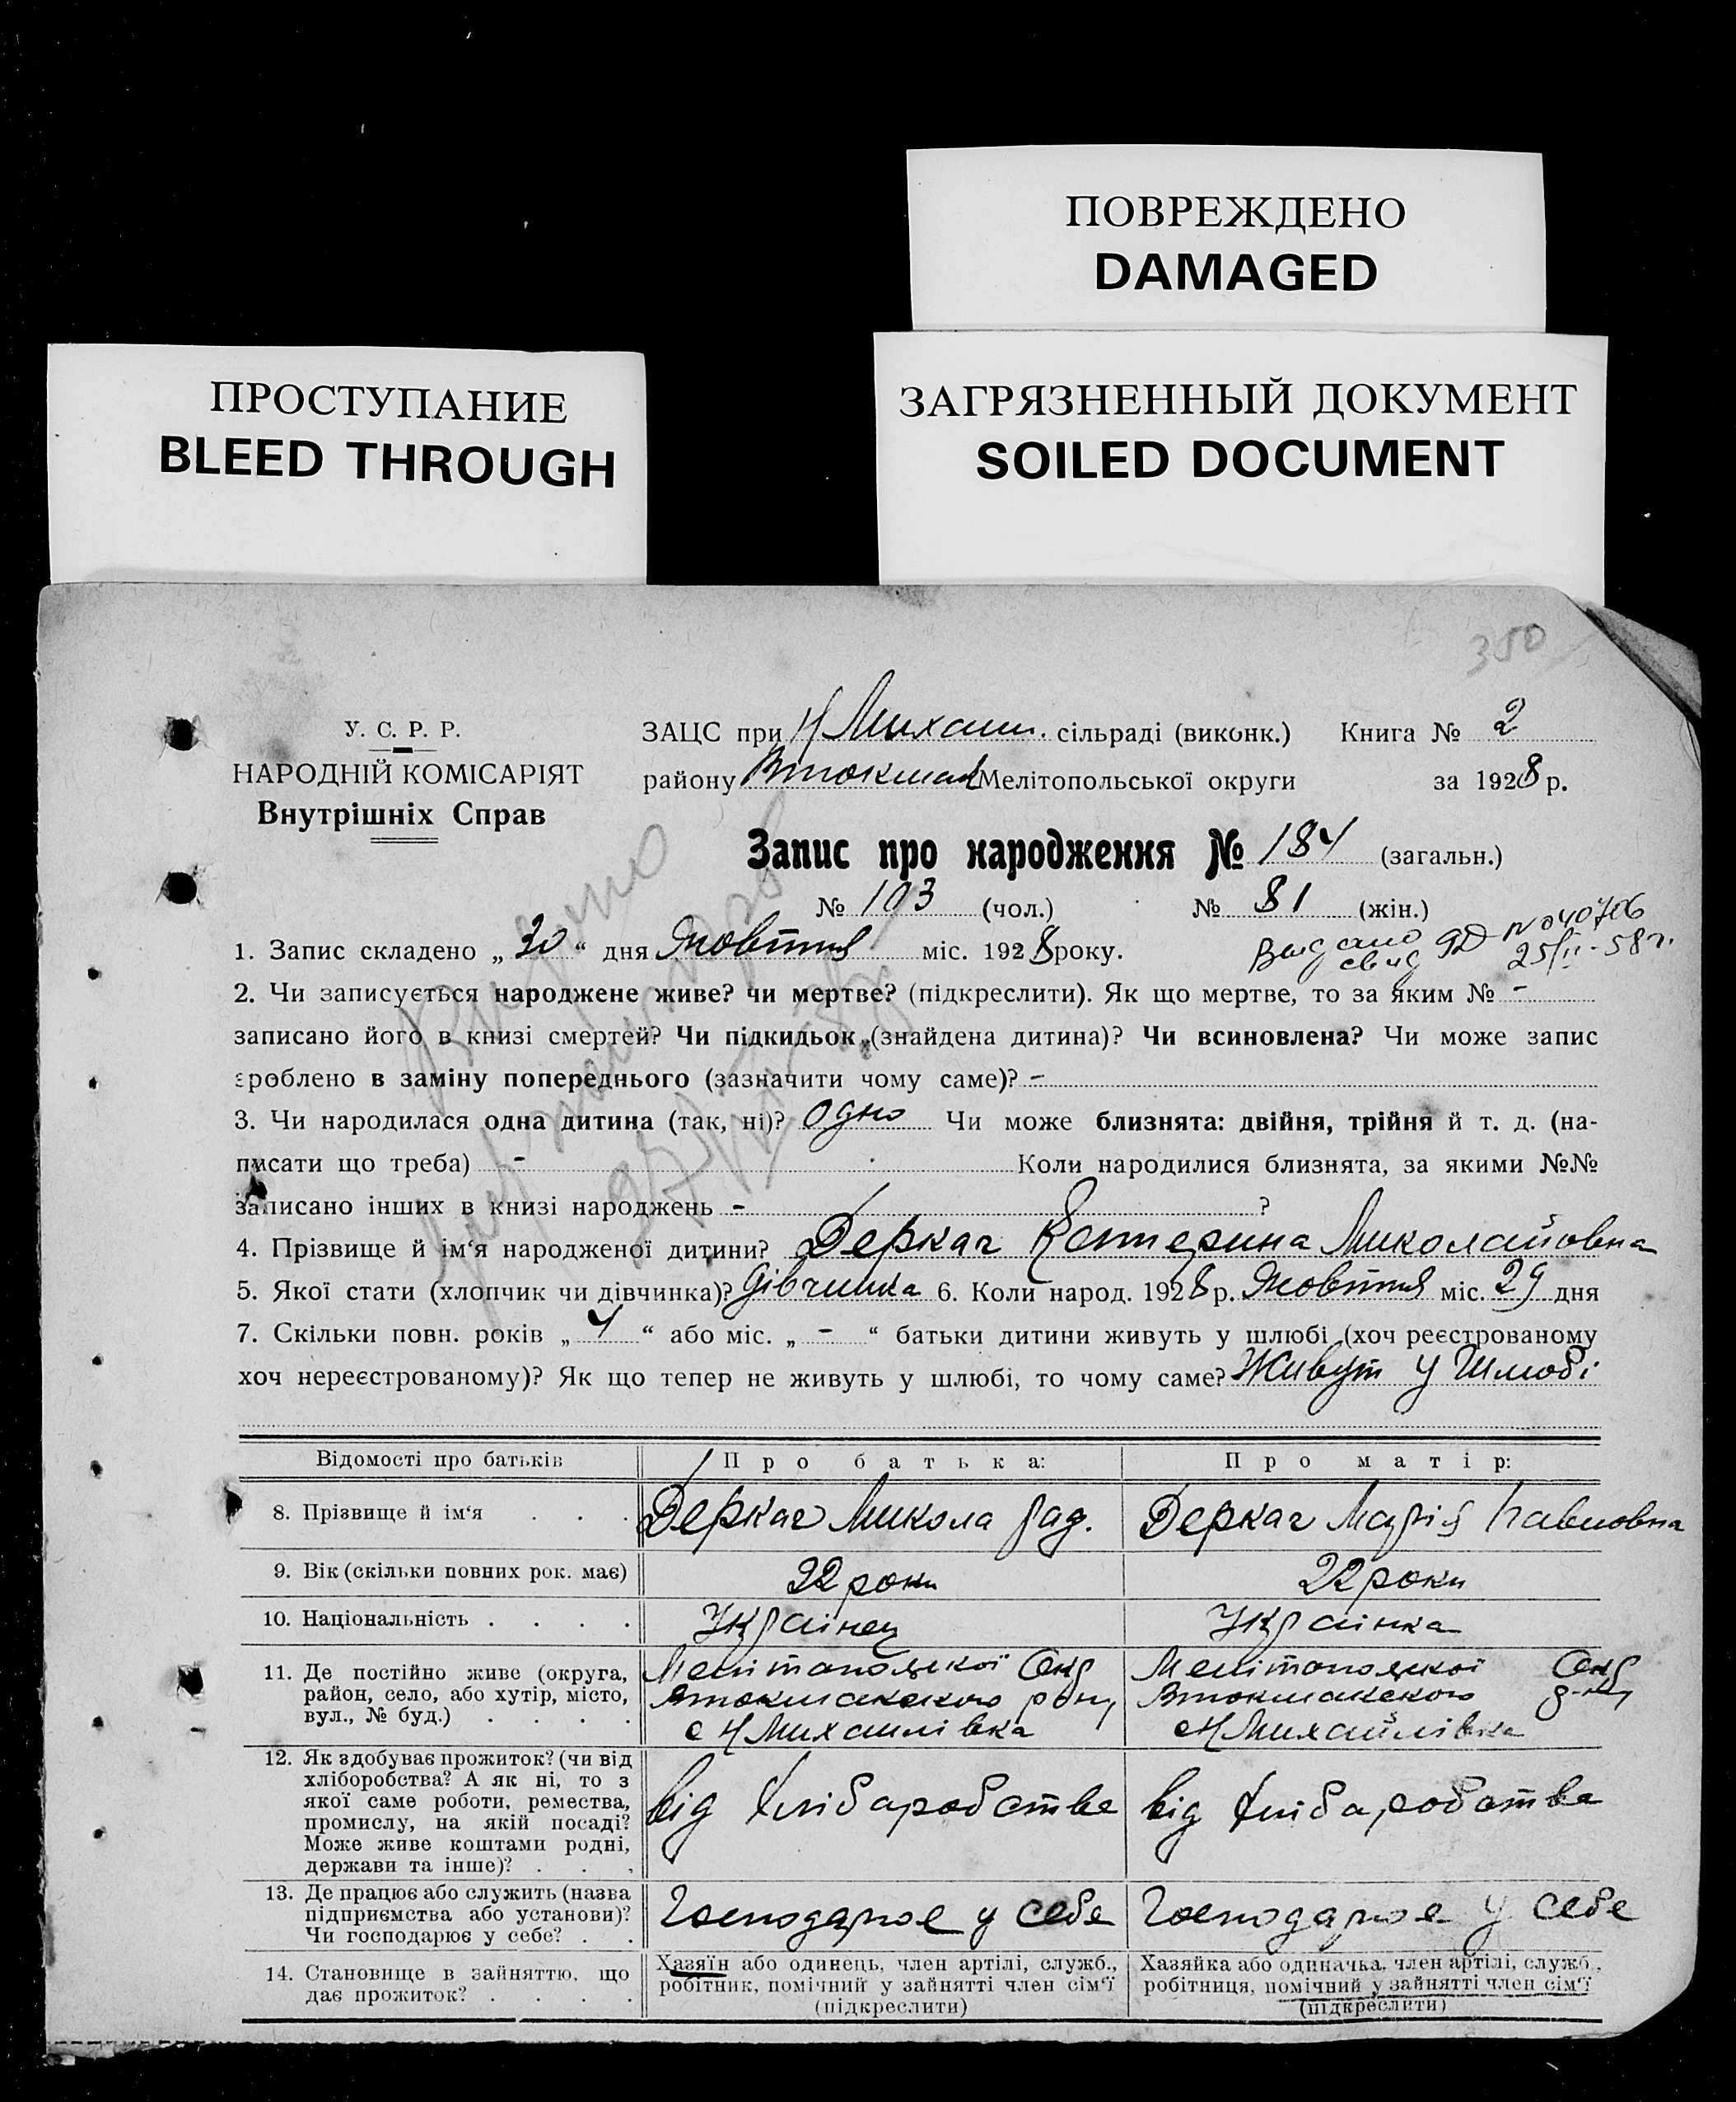 ПОВРЕЖДЕНО
DAMAGED
ПРОСТУПАНИЕ
BLEED THROUGH
ЗАГРЯЗНЕННЫЙ ДОКУМЕНТ
SOILED DOCUMENT
350
У. С. Р. Р.
НАРОДНІЙ КОМІСАРІЯТ
Внутрішніх Справ
ЗАЦС при Н Михаил. сільраді (виконк.) Книга № 2
району Втокмак Мелітопольської округи за 1928 р.
Запис про народження № 184 (загальн.)
№ 103 (чол.) № 81 (жін.)
Выдано свид ЯД № 040706
25/II-58 г.
1. Запис складено „30“ дня Жовтня міс. 1928 року.
2. Чи записується народжене живе? чи мертве? (підкреслити). Як що мертве, то за яким № -
записано його в книзі смертей? Чи підкидьок (знайдена дитина)? Чи всиновлена? Чи може запис
зроблено в заміну попереднього (зазначити чому саме)? -
3. Чи народилася одна дитина (так, ні)? Одно Чи може близнята: двійня, трійня й т. д. (на-
писати що треба) - Коли народилися близнята, за якими №№
записано інших в книзі народжень - ?
4. Прізвище й ім‘я народженої дитини? Деркач Катерина Миколайовна
5. Якої стати (хлопчик чи дівчинка)? дівчинка 6. Коли народ. 1928 р. Жовтня міс. 29 дня
7. Скільки повн. років „4“ або міс. „-“ батьки дитини живуть у шлюбі (хоч реєстрованому
хоч нереєстрованому)? Як що тепер не живуть у шлюбі, то чому саме? Живут у Шлюбі
Відомості про батьків Про батька: Про матір:
8. Прізвище й ім‘я . . . Деркач Микола Рад. Деркач Марія Павловна
9. Вік (скільки повних рок. має) 22 роки 22 роки
10. Національність . . . . Українец Українка
11. Де постійно живе (округа, Мелітопольскої Окр Мелітопольскої Окр
район, село, або хутір, місто, Втокмакского р-ну Втокмакского р-ну
вул., № буд.) . . . . с Н Михайлівка с Н Михайлівка
12. Як здобуває прожиток? (чи від
хліборобства? А як ні, то з
якої саме роботи, ремества, від Хлібаробства від Хлібаробства
промислу, на якій посаді?
Може живе коштами родні,
держави та інше)? . . .
13. Де працює або служить (назва
підприємства або установи)? Господарює у себе Господарює у себе
Чи господарює у себе? . .
14. Становище в зайняттю, що Хазяїн або одинець, член артілі, служб., Хазяйка або одиначка, член артілі, служб.,
дає прожиток? . . . . робітник, помічний у зайнятті член сім‘ї робітниця, помічний у зайнятті член сім‘ї
(підкреслити) (підкреслити)